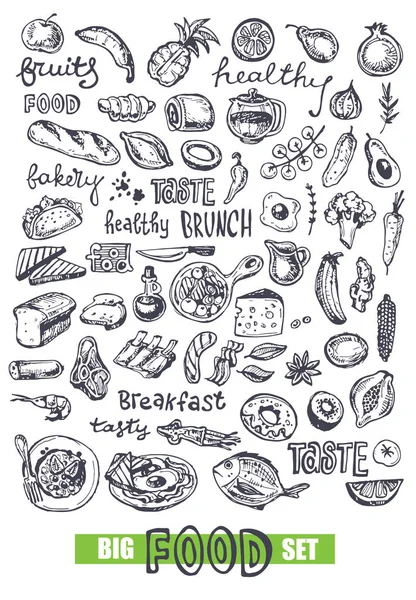 fruits
healthy
FOOD
bakery
TASTE
healthy BRUNCH
food
Breakfast
tasty
TASTE
BIG FOOD SET